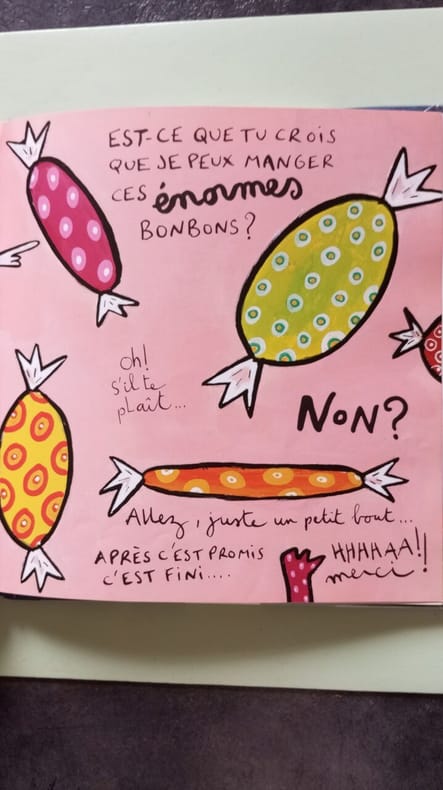 EST-CE QUE TU CROIS
QUE JE PEUX MANGER
CES énormes
BONBONS?
oh!
s'il te
plaît...
NON?
Allez, juste un petit bout...
APRÈS C'EST PROMIS
C'EST FINI....
HHHHAA!!
merci